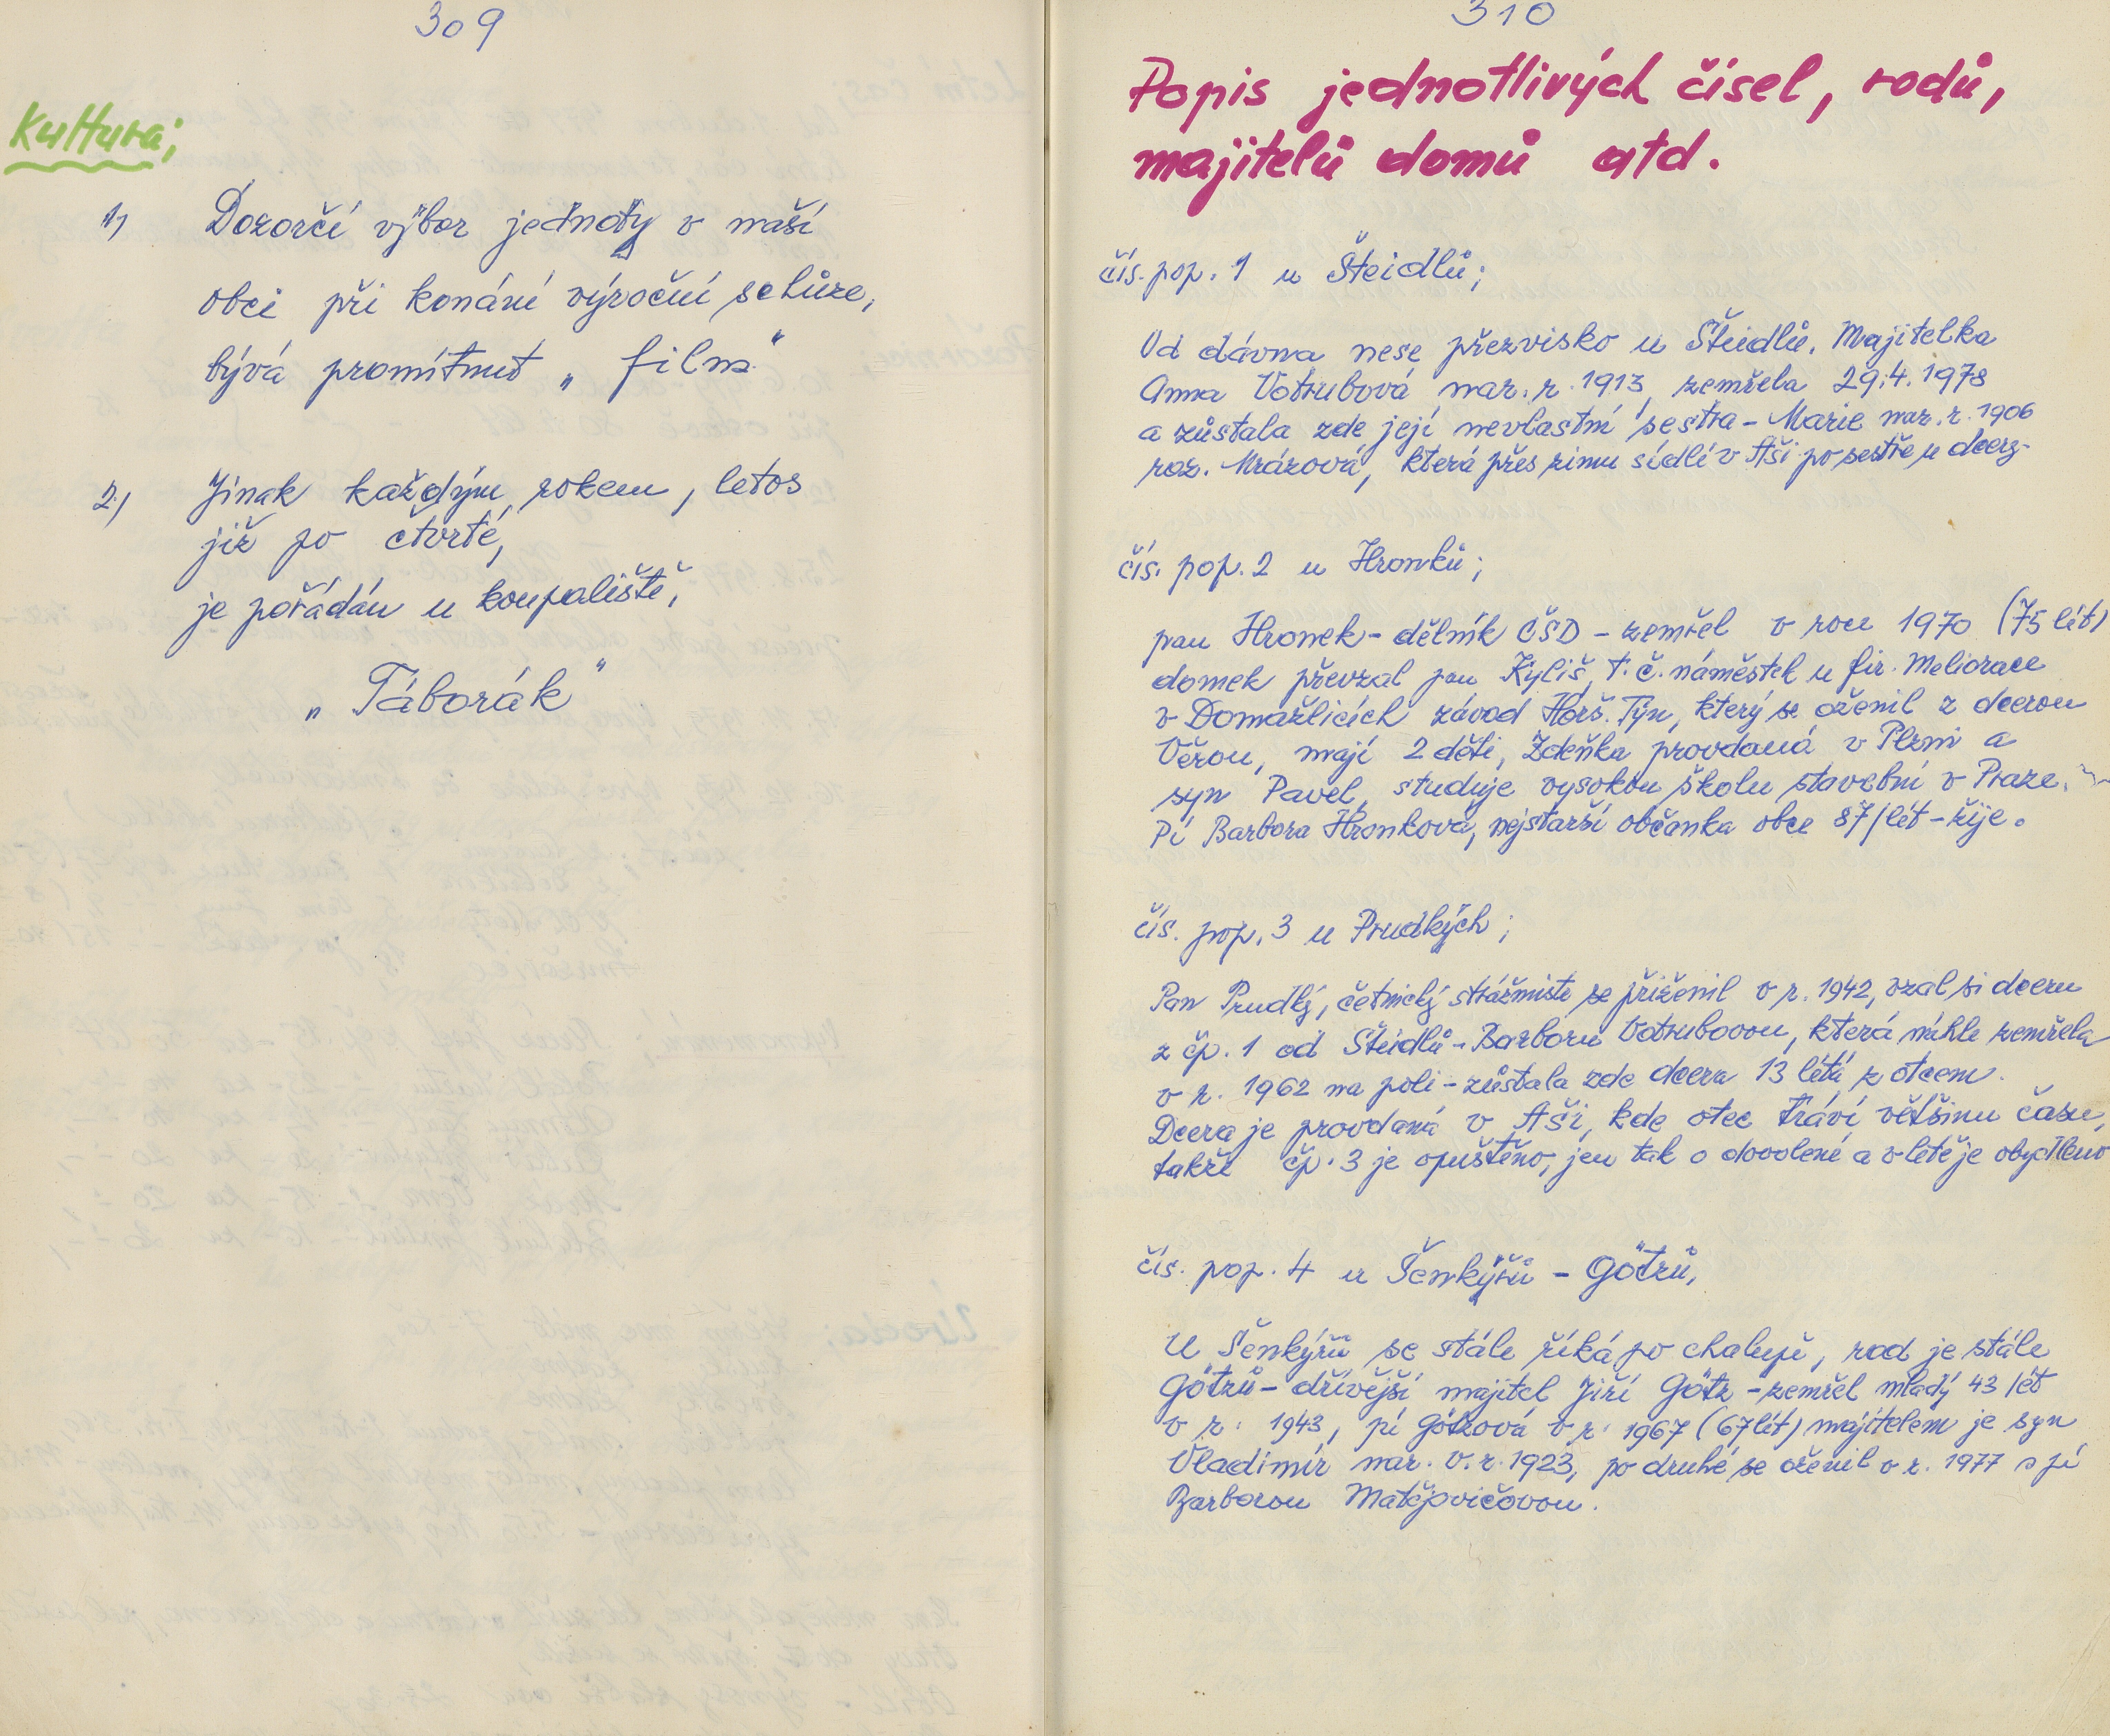 309
Kultura;
1) Dozorčí výbor jednoty v naší
obci při konání výroční schůze,
bývá promítnut „film“
2) Jinak každým rokem, letos
již po čtvrté,
je pořádán u koupaliště;
„Táborák“
310
Popis jednotlivých čísel, rodů,
majitelů domů atd.
čís. pop. 1 u Šteidlů;
Od dávna nese přezvisko u Šteidlů. Majitelka
Anna Votrubová nar. r. 1913, zemřela 29.4.1978
a zůstala zde její nevlastní sestra - Marie nar. r. 1906
roz. Mrázová, která přes zimu sídlí v Aši po sestře u dcery.
čís. pop. 2 u Hronků;
pan Hronek - dělník ČSD - zemřel v roce 1970 (75 lét)
domek převzal pan Kyliš, t.č. náměstek u fir. Meliorace
v Domažlicích závod Horš. Týn, který se oženil z dcerou
Věrou, mají 2 děti, Zdeňka provdaná v Plzni a
syn Pavel, studuje vysokou školu stavební v Praze.
Pí Barbora Hronková, nejstarší občanka obce 87/lét - žije.
čís. pop. 3 u Prudkých;
Pan Prudký, četnický strážmistr se přiženil v r. 1942, vzal si dceru
z čp. 1 od Šteidlů - Barboru Votrubovou, která náhle zemřela
v r. 1962 na poli - zůstala zde dcera 13 létá z otcem.
Dcera je provdaná v Aši, kde otec tráví většinu času,
takže čp. 3 je opuštěno, jen tak o dovolené a v létě je obydleno
čís. pop. 4 u Šenkýřů - Götzů,
U Šenkýřů se stále říká po chalupě, rod je stále
Götzů - dřívější majitel Jiří Götz - zemřel mladý 43 lét
v r. 1943, pí Götzová v r. 1967 (67 lét) májitelem je syn
Vladimír nar. v. r. 1923, po druhé se oženil v r. 1977 s pí
Barborou Matějovičovou.